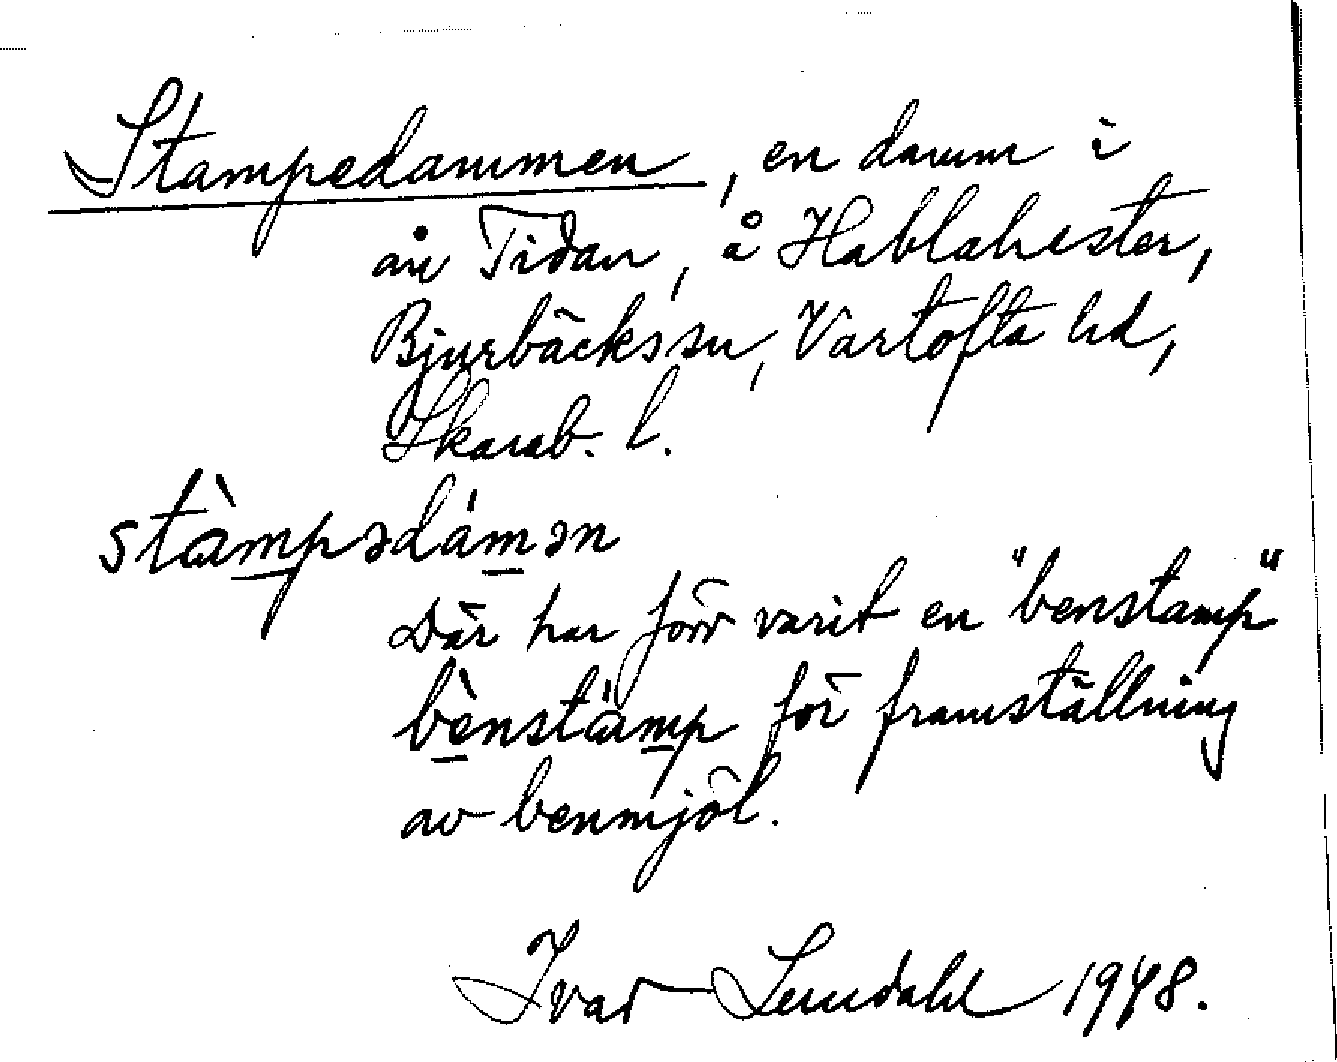 Stampedammen, en damm i
ån Tidan, å Hablahester,
Bjurbäcks sn, Vartofta hd,
Skarab. l.
stàmpədámən
Där har förr varit en "benstamp"
bènstämp för framställning
av benmjöl.
Ivar Lundahl 1948.